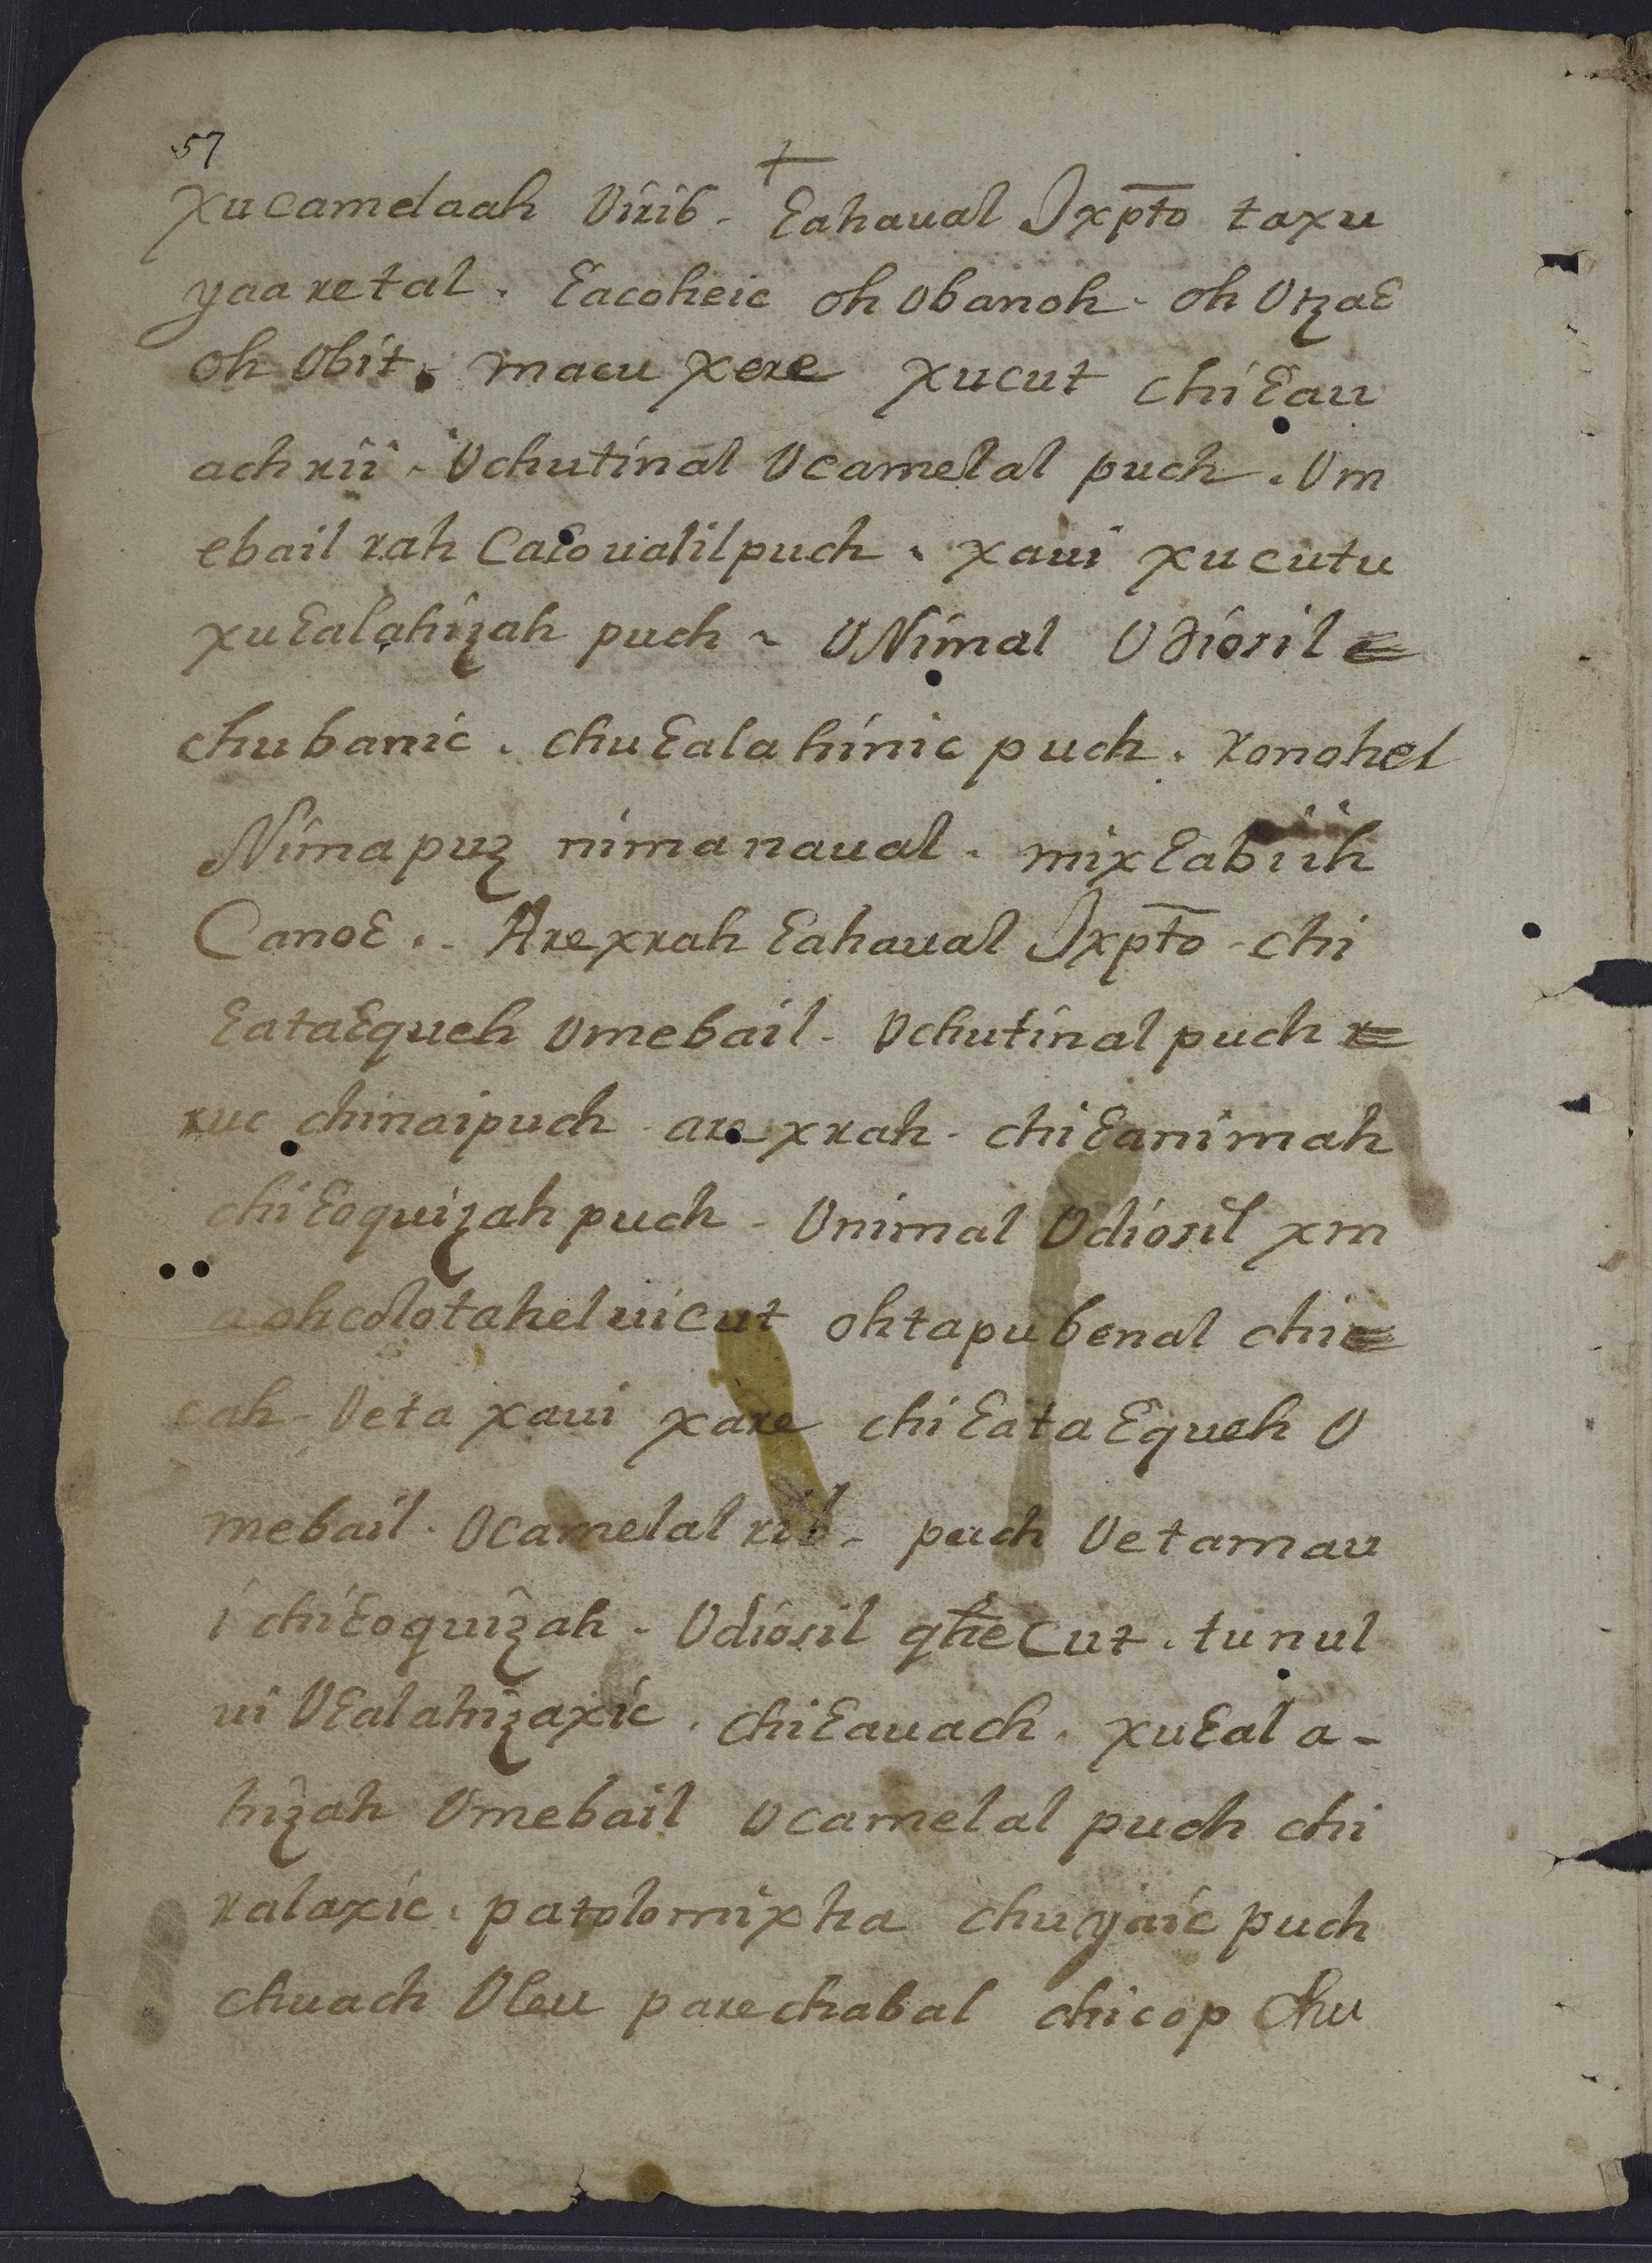 57
+
xucamelaah Uirib - Ɛahaual Jxp̄to taxu
yaa retal. Ɛacoheic oh Ubanoh - oh UtzaƐ
oh Ubit. macu xere xucut chiƐau
ach rii - Uchutinal Ucamelal puch. Um
ebail rah CaƐoualil puch. xaui xucutu
xuƐalahiçah puch ~ UNimal Udiosil
chubanic. chuƐalahinic puch. ronohel
Nima puz nima naual. mix Ɛabiih
CanoƐ.. Arexrah Ɛahaual Jxp̄to - chi
ƐataƐqueh Umebail - Uchutinal puch
ruc chinaipuch - are xrah - chiƐanimah
chiƐoquiçah puch - Unimal Udiosil xm
a ohcolotahel uicut ohtapubenal chi
cah - Ueta xaui xare chiƐataƐqueh U
mebail. Ucamelal rib - puch Uetamau
i chiƐoquiçah - Udiosil qħeCut. tu nul
ui UƐalahiçaxic. chiƐauach. xuƐala-
hiçah Umebail Ucamelal puch chi
ralaxic. patolomixha chuyaic puch
chuach Uleu parechabal chicop Chu